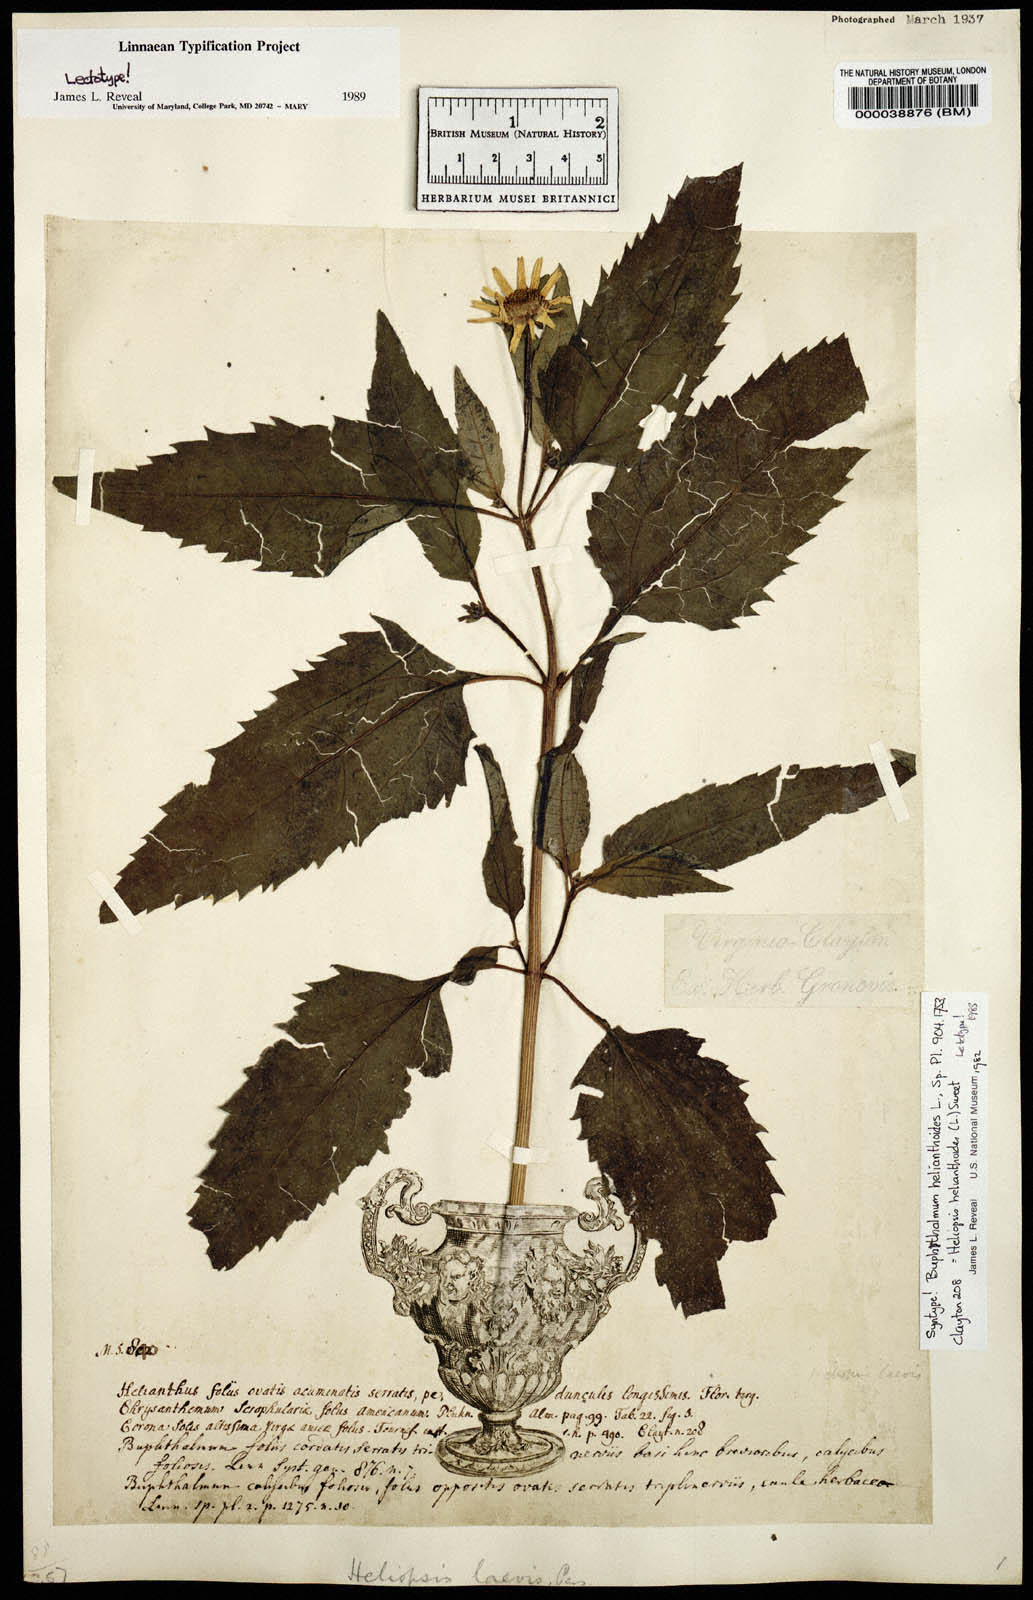 Photographed March 1937
Linnaean Typification Project
Lectotype!
James L. Reveal 1989
University of Maryland, College Park, MD 20742 – MARY
THE NATURAL HISTORY MUSEUM, LONDON
DEPARTMENT OF BOTANY
000038876 (BM)
1 2
BRITISH MUSEUM (NATURAL HISTORY)
1 2 3 4 5
HERBARIUM MUSEI BRITANNICI
Virginia Clayton
Herb. Gronovii
Syntype! Buphthalmum helianthoides L., Sp. Pl. 904. 1753
Clayton 208 = Heliopsis helianthoides (L.) Sweet Lectotype!
James L. Reveal U.S. National Museum, 1982 1985
Helianthus foliis ovatis acuminatis serratis, pedunculis longissimis. Flor. virg.
Chrysanthemum Scrophulariæ foliis americanum. Plukn. Alm. pag. 99. Tab. 22. fig. 3.
Corona Solis altissima, Virgæ aureæ foliis. Tournef. inst. p. 490. Clayt. n. 208
Buphthalmum foliis cordatis serratis nervis basi hinc brevioribus, calycibus
foliosis. Linn Syst. gen. 876. n. 7
Buphthalmum calycibus foliosis, foliis oppositis ovatis serratis triplinerviis, caule herbaceo
Linn. sp. pl. 2. p. 1275. n. 10
laevis
Heliopsis laevis, Pers
1